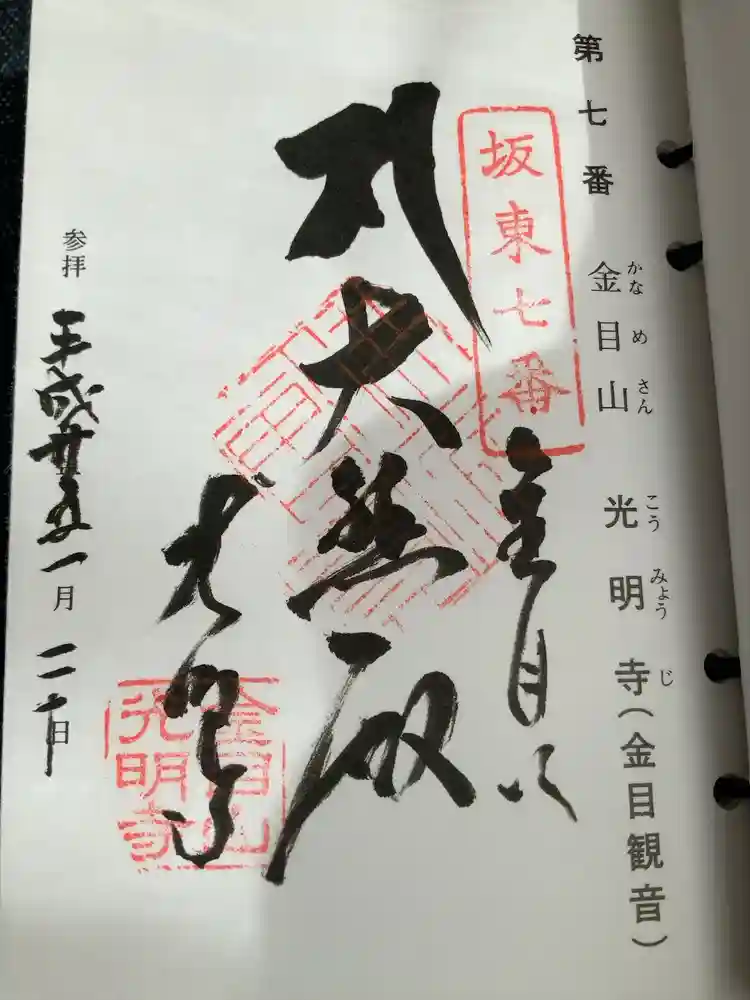 第七番 金目山 光明寺(金目観音)
かなめさん こうみょうじ
坂東七番
金目山
大悲殿
光明寺
金目山
光明寺
参拝 平成廿五一月二十日